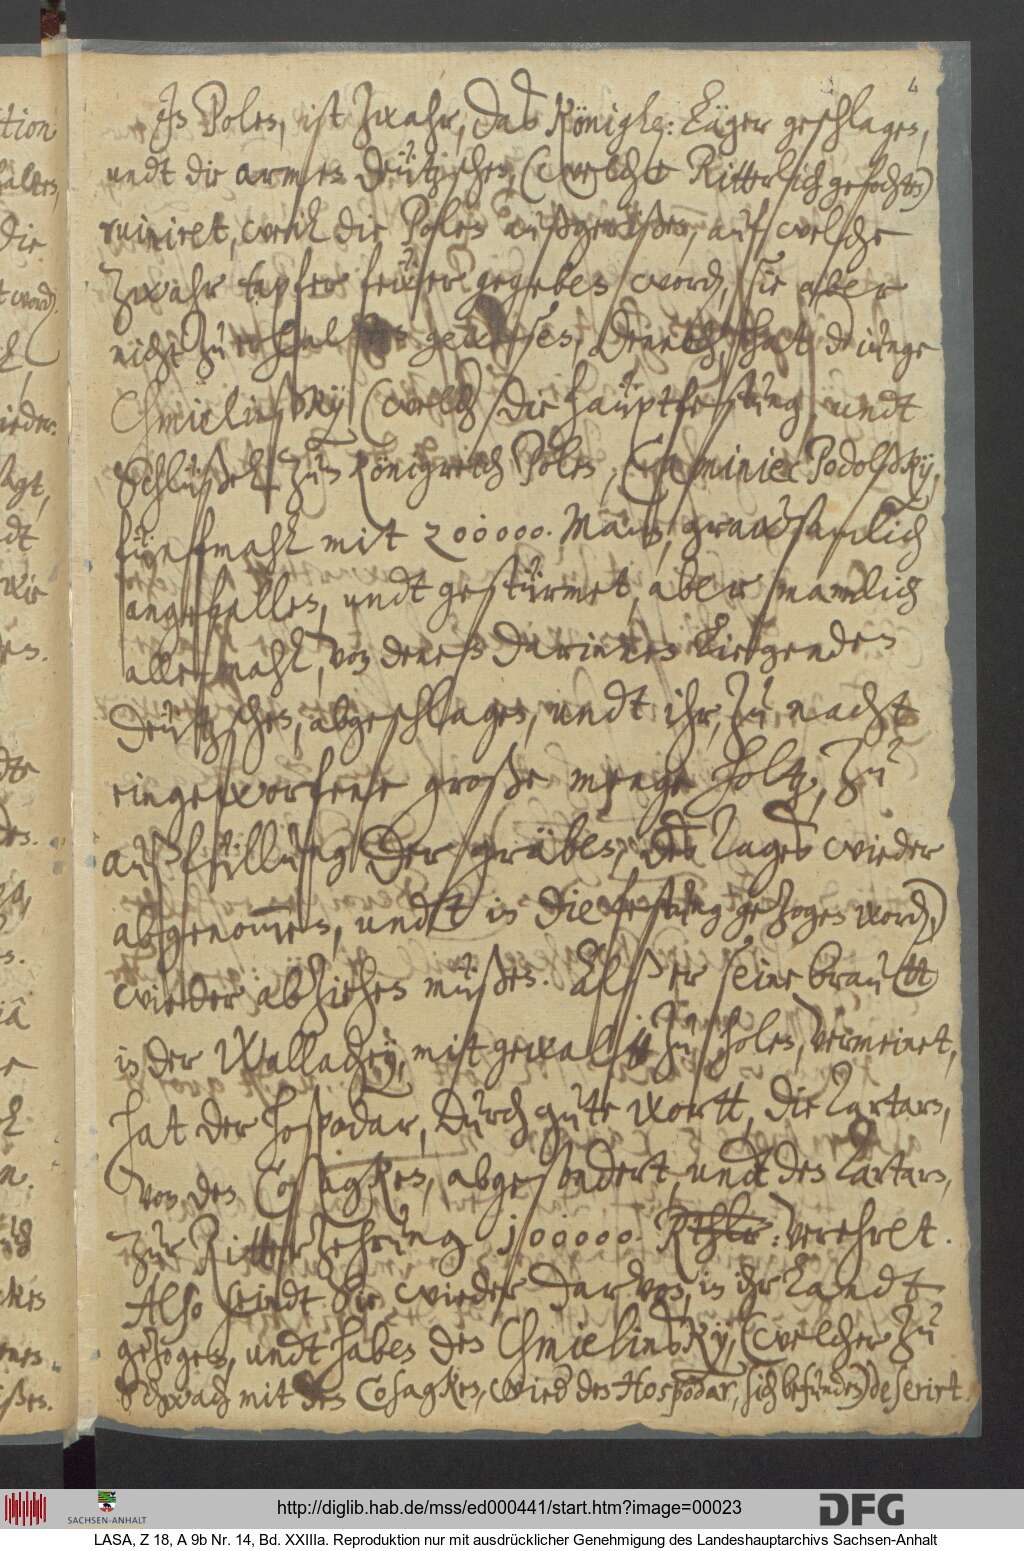 4
In Polen, ist zwahr, das Königl: Läger geschlagen,
undt die armen Deützschen, (welche Ritterlich gefochten)
ruiniret, weil die Polen außgerißen, auf welche
zwahr tapfer feüer gegeben word, sie aber
nicht zu erhalten gewesen, Dennoch, hat d iunge
Chmielinßky, (welch die hauptfestung, undt
Schlüßel, zum Königreich Polen, Caminiec Podolsky,
fünfmahl mit 200000. Mann, grawsamlich
angefallen, undt gestürmet, aber mannlich
allemahl, von denen darinnen Liegenden
Deützschen, abgeschlagen, undt ihr, zu nacht
eingeworfene große menge holtz, zu
außfüllung der gräben, des Tages wieder
abgenommen, undt in die festung gezogen word,)
wieder abziehen müßen. Alß er seine brautt
in der Wallachey, mit gewaltt zu holen, vermeinet,
hat der Hospodar, durch gute wortt, die Tartarn,
von den Cosagken, abgesondert, undt den Tartarn,
zur Ritterzehrung 100000. Rthlr: verehret.
Also seindt Sie wieder darvon, in ihr Landt
gezogen, undt haben den Chmielinsky, (welcher zu
Schwach mit den Cosagken, wied den Hospodar, sich befunden) deserirt.
http://diglib.hab.de/mss/ed000441/start.htm?image=00023
SACHSEN-ANHALT
DFG
LASA, Z 18, A 9b Nr. 14, Bd. XXIIIa. Reproduktion nur mit ausdrücklicher Genehmigung des Landeshauptarchivs Sachsen-Anhalt